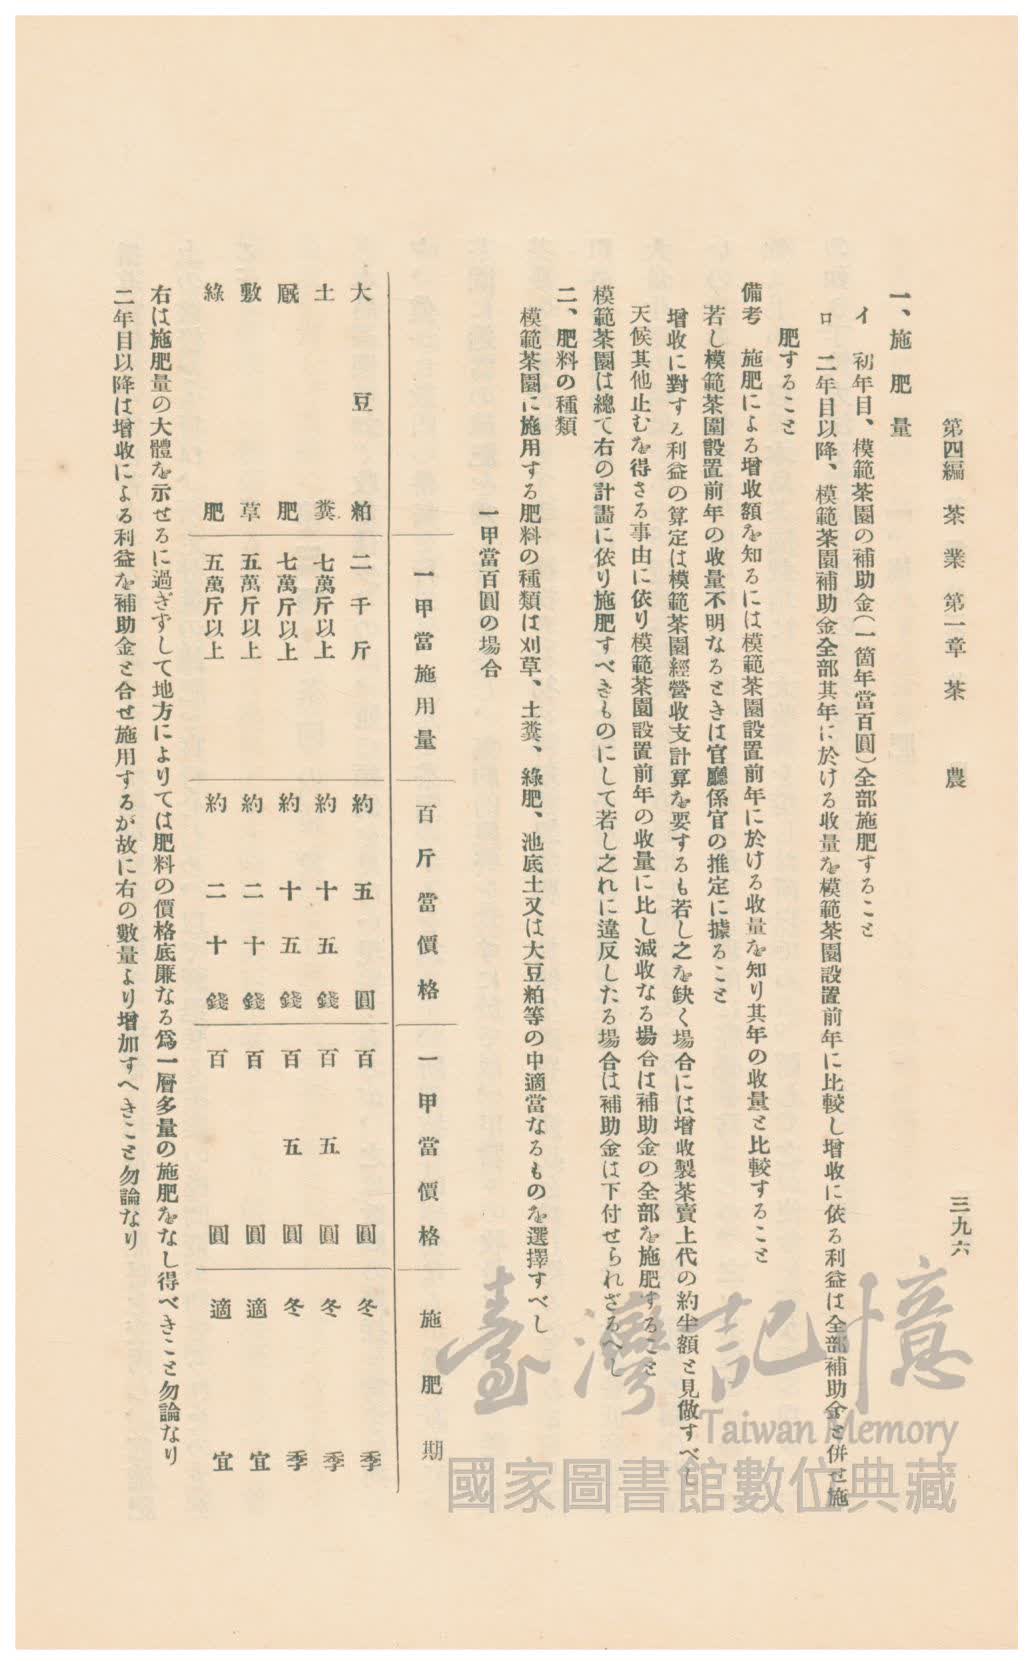 第四編 茶業 第一章 茶農
三九六
一、施肥量
イ 初年目、模範茶園の補助金(一箇年當百圓)全部施肥すること
ロ 二年目以降、模範茶園補助金全部其年に於ける收量を模範茶園設置前年に比較し增收に依る利益は全部補助金と併せ施
肥すること
備考 施肥による增收額を知るには模範茶園設置前年に於ける收量を知り其年の收量と比較すること
若し模範茶園設置前年の收量不明なるときは官廳係官の推定に據ること
增收に對する利益の算定は模範茶園經營收支計算を要するも若し之を缺く場合には增收製茶賣上代の約半額と見做すべし
天候其他止むを得さる事由に依り模範茶園設置前年の收量に比し減收なる場合は補助金の全部を施肥すること
模範茶園は總て右の計畵に依り施肥すべきものにして若し之れに違反したる場合は補助金は下付せられざるべし
二、肥料の種類
模範茶園に施用する肥料の種類は刈草、土糞、綠肥、池底土又は大豆粕等の中適當なるものを選擇すべし
一甲當百圓の場合
一甲當施用量 百斤當價格 一甲當價格 施肥期
大豆粕 二千斤 約五圓 百圓 冬季
土糞 七萬斤以上 約十五錢 百五圓 冬季
厩肥 七萬斤以上 約十五錢 百五圓 冬季
敷草 五萬斤以上 約二十錢 百圓 適宜
綠肥 五萬斤以上 約二十錢 百圓 適宜
右は施肥量の大體を示せるに過ぎずして地方によりては肥料の價格底廉なる爲一層多量の施肥をなし得べきこと勿論なり
二年目以降は增收による利益を補助金と合せ施用するが故に右の數量より增加すへきこと勿論なり
臺灣記憶
Taiwan Memory
國家圖書館數位典藏